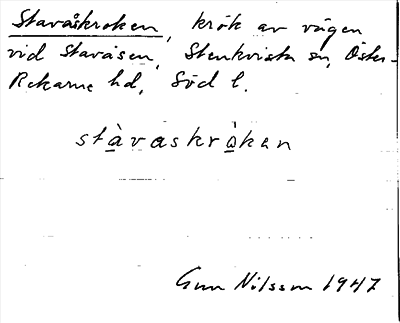 Stavåskroken, krök av vägen
vid Stavåsen, Stenkvista sn, Öster-
Rekarne hd, Söd l.
stàvaskrò̱kan
Gun Nilsson 1947